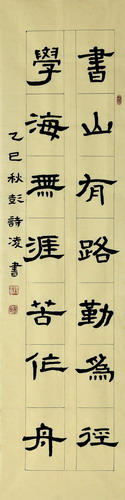 書山有路勤為徑
學海無涯苦作舟
乙巳秋彭詩凌書